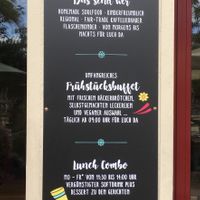 Das sind wir
HOMEMADE SOULFOOD - KINDERFREUNDLICH
REGIONAL - FAIR-TRADE KAFFEELIEBHABER
FLASCHENKINDER - VON MORGENS BIS
NACHTS FÜR EUCH DA
UMFANGREICHES
Frühstücksbuffet
MIT FRISCHEN BÄCKERBRÖTCHEN,
SELBSTGEMACHTEN LECKEREIEN
UND VEGANER AUSWAHL ...
TÄGLICH AB 09:00 UHR FÜR EUCH DA
Lunch Combo
MO - FR VON 11:30 BIS 14:00 UHR
VERGÜNSTIGTER SOFTDRINK PLUS
DESSERT ZU DEN GERICHTEN